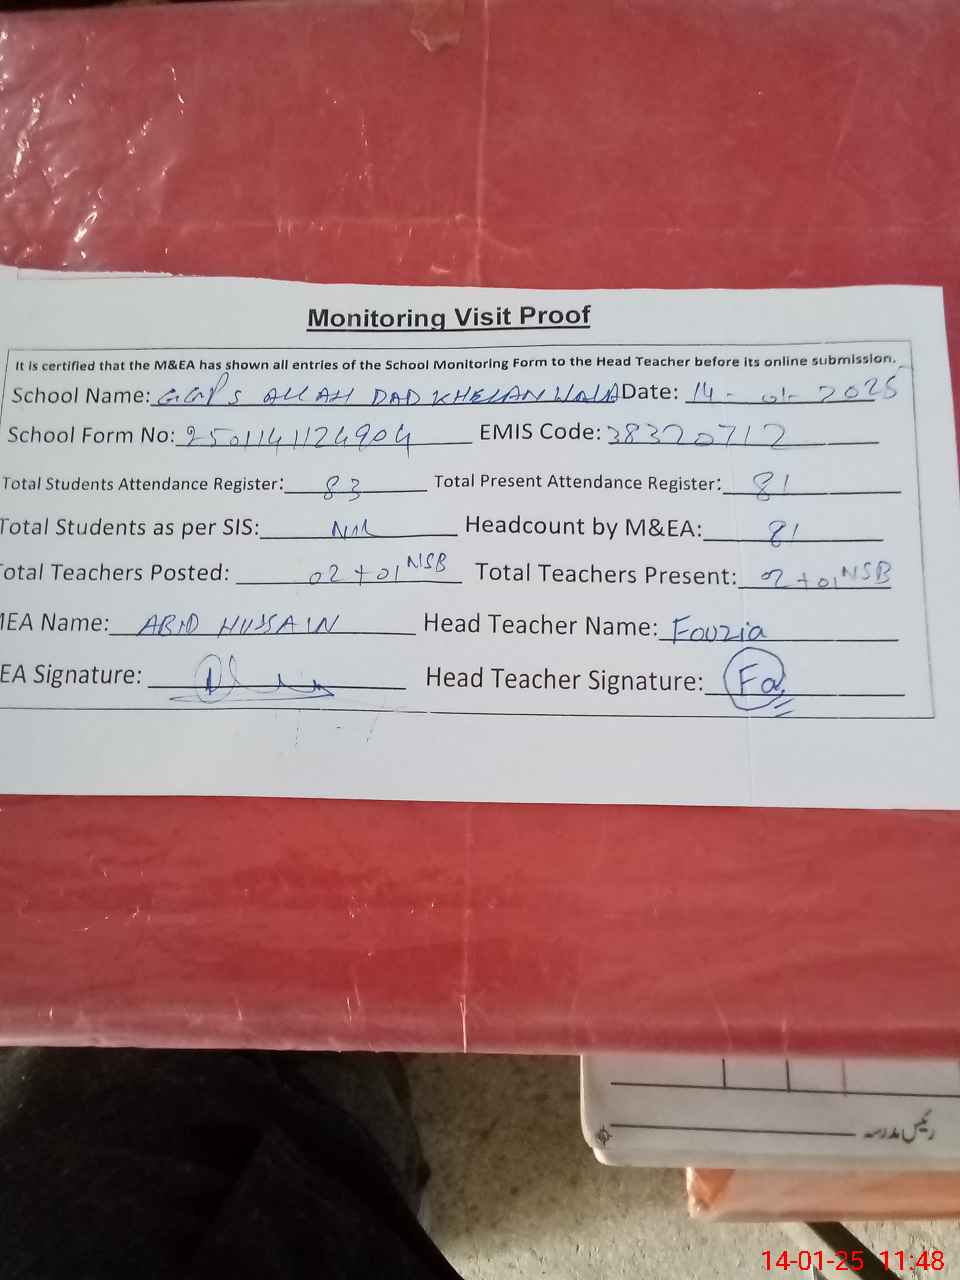 Monitoring Visit Proof
It is certified that the M&EA has shown all entries of the School Monitoring Form to the Head Teacher before its online submission.
School Name: GGPS ALLAH DAD KHELAN WALA Date: 14-01-2025
School Form No: 2501141124904 EMIS Code: 38320712
Total Students Attendance Register: 83 Total Present Attendance Register: 81
Total Students as per SIS: Nil Headcount by M&EA: 81
otal Teachers Posted: 02+01 NSB Total Teachers Present: 02+01 NSB
MEA Name: ABID HUSSAIN Head Teacher Name: Fouzia
EA Signature: Head Teacher Signature: Fa
رئیس مدرسہ
14-01-25 11:48